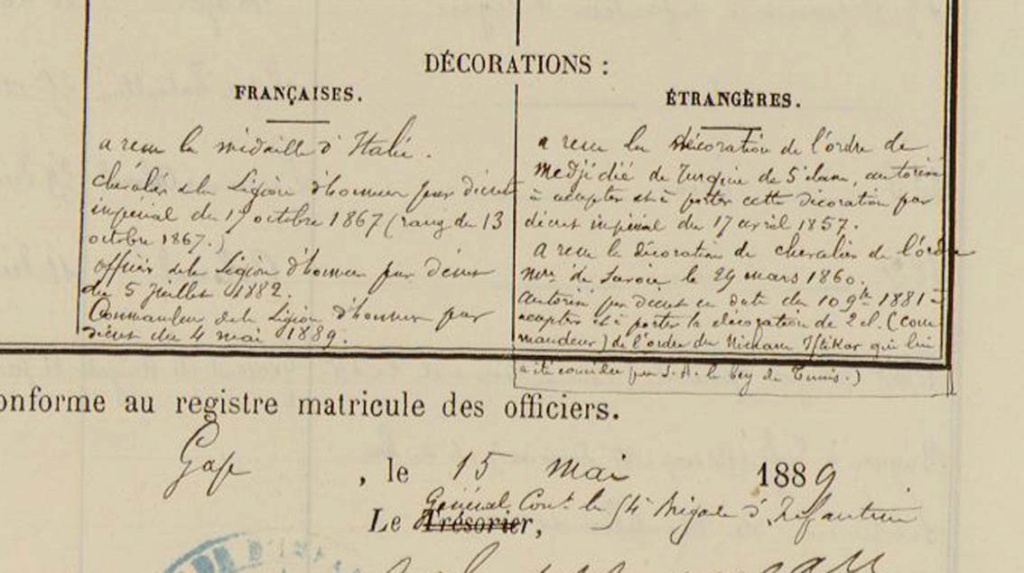 DÉCORATIONS :
FRANÇAISES.
a reçu la médaille d'Italie.
chevalier de la Légion d'honneur par décret
impérial du 19 octobre 1867 (rang du 13
octobre 1867.)
officier de la Légion d'honneur par décret
du 5 juillet 1882.
Commandeur de la Légion d'honneur par
décret du 4 mai 1889.
ÉTRANGÈRES.
a reçu la décoration de l'ordre du
Medjidié de Turquie de 5e classe, autorisé
à accepter et à porter cette décoration par
décret impérial du 17 avril 1857.
A reçu la décoration de chevalier de l'ordre
mre de Savoie le 29 mars 1860.
autorisé par décret en date du 10 9bre 1881 à
accepter et à porter la décoration de 2e cl. (com
mandeur) de l'ordre du Nicham Iftikar qui lui
a été conférée par S. A. le bey de Tunis.)
onforme au registre matricule des officiers.
Gap, le 15 mai 1889
Général Comt la 54e Brigade d'Infanterie
Le Trésorier,